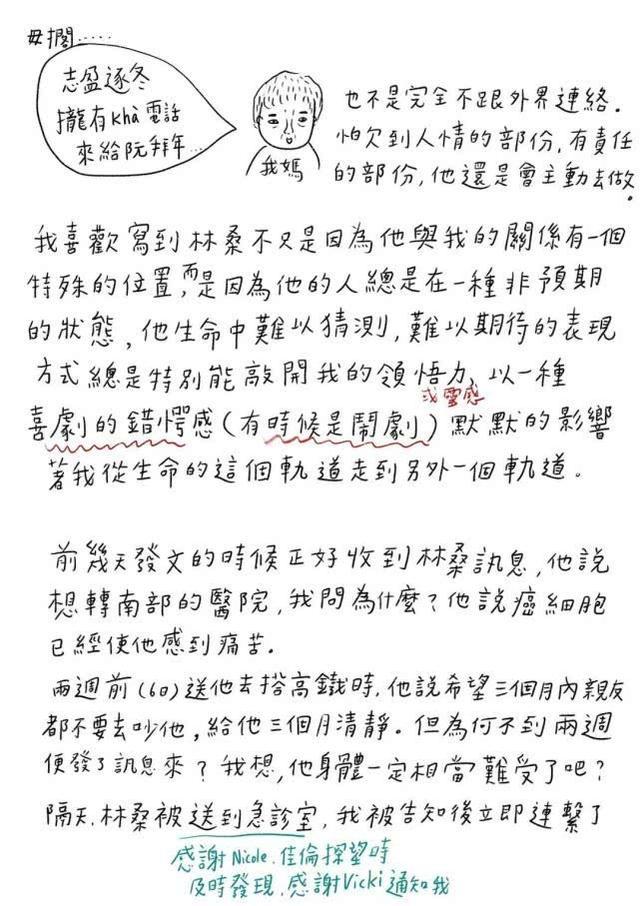 毋擱.....
志盈逐冬
攏有khà電話
來給阮拜年...
我媽
也不是完全不跟外界連絡.
怕欠到人情的部份,有責任
的部份,他還是會主動去做。
我喜歡寫到林桑不只是因為他與我的關係有一個
特殊的位置,而是因為他的人總是在一種非預期
的狀態,他生命中難以猜測,難以期待的表現
方式總是特別能敲開我的領悟力,以一種
或靈感
喜劇的錯愕感(有時候是鬧劇)默默的影響
著我從生命的這個軌道走到另外一個軌道。
前幾天發文的時候正好收到林桑訊息,他說
想轉南部的醫院,我問為什麼?他說癌細胞
已經使他感到痛苦.
兩週前(6日)送他去搭高鐵時,他說希望三個月內親友
都不要去吵他,給他三個月清靜。但為何不到兩週
便發了訊息來?我想,他身體一定相當難受了吧?
隔天.林桑被送到急診室,我被告知後立即連繫了
感謝Nicole.佳倫探望時
及時發現.感謝Vicki通知我